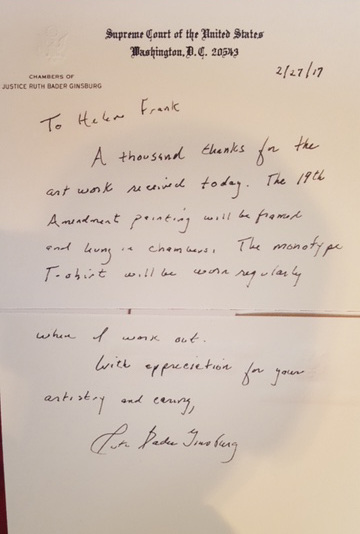 Supreme Court of the United States
Washington, D. C. 20543
CHAMBERS OF
JUSTICE RUTH BADER GINSBURG
2/27/17
To Helen Frank
A thousand thanks for the
art work received today. The 19th
Amendment painting will be framed
and hung in chambers. The monotype
T-shirt will be worn regularly
when I work out.
With appreciation for your
artistry and caring,
Ruth Bader Ginsburg